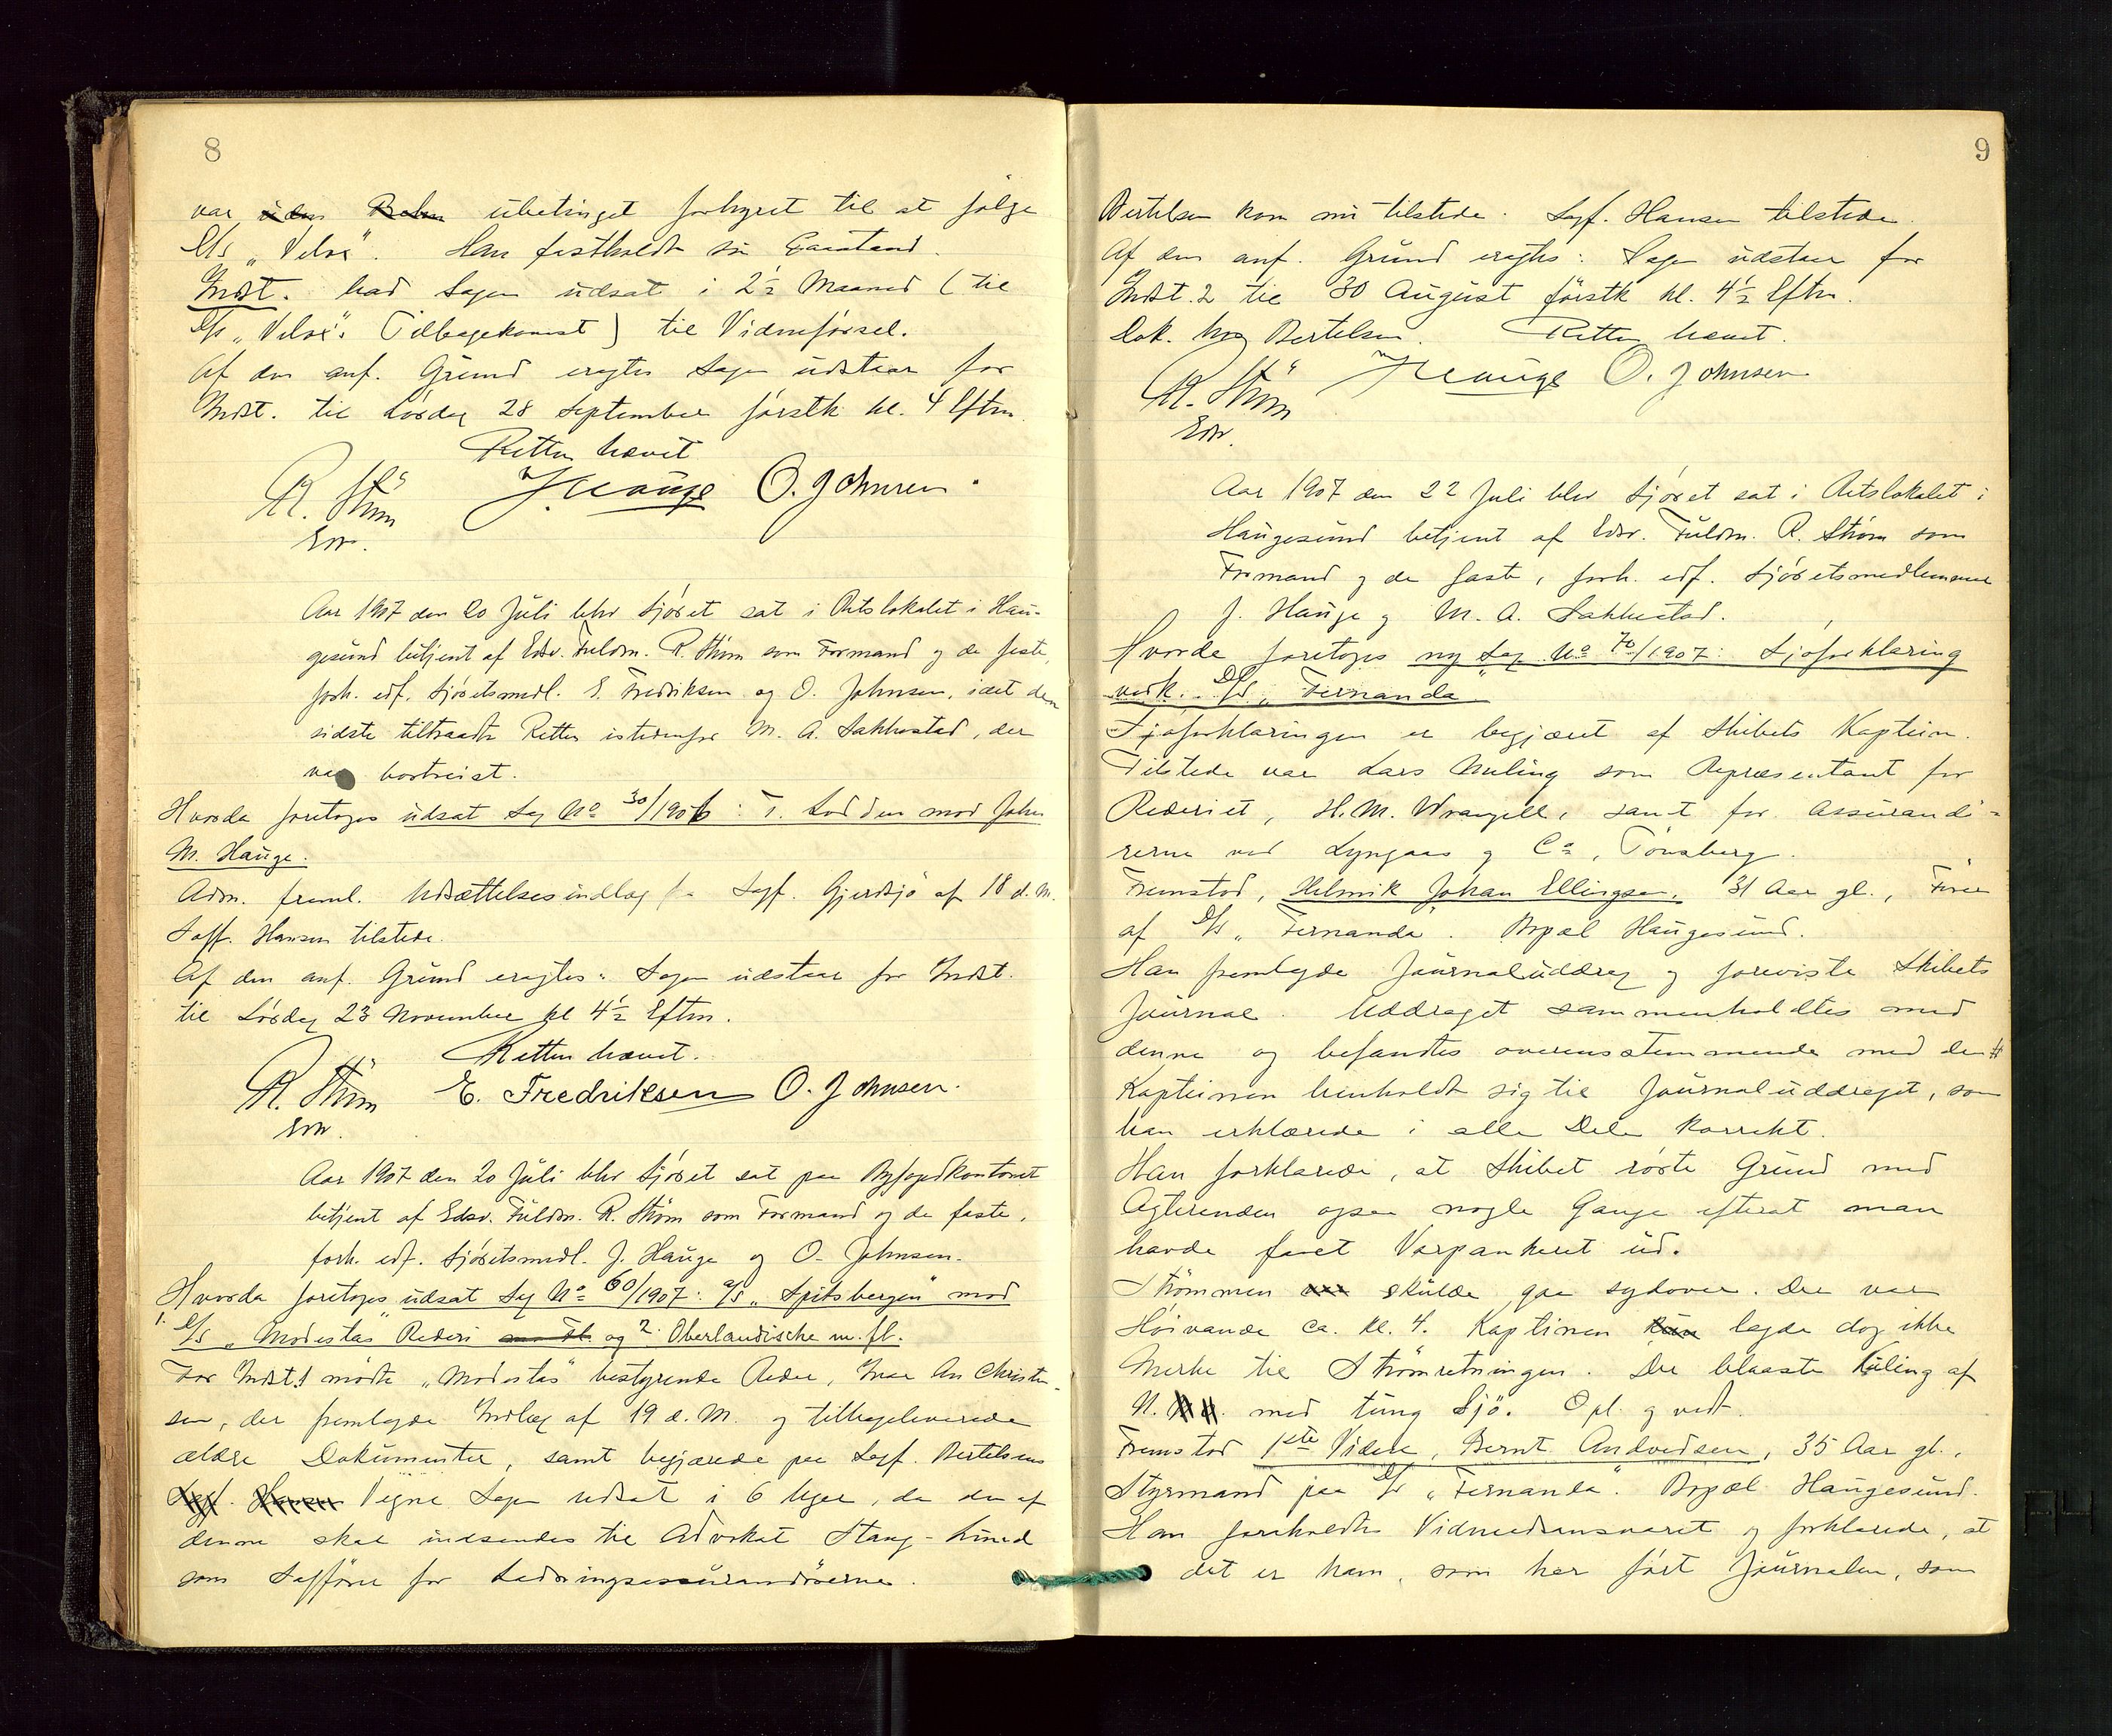 8
var uden ubetinget forhyret til at følge
D/S „Velox". Han fastholdt sin Paastand.
Indst. bad Sagen udsat i 2½ Maaned (til
D/S „Velox"s Tilbagekomst) til Vidneførsel.
Af den anf. Grund eragtes Sagen udstaar for
Indst. til Lørdag 28 September førstk kl. 4 Eftm.
Retten hævet
R. Strøm J Hauge O. Johnsen.
Edsv.
Aar 1907 den 20 Juli blev Sjøret sat i Retslokalet i Hau-
gesund betjent af Edsv. Fuldm. R. Strøm som Formand og de faste,
forh. edf. Sjøretsmedl. E. Fredriksen og O. Johnsen, idet den
sidste tiltraadte Retten istedenfor M. A. Sakkestad, der
var bortreist.
Hvorda foretoges udsat Sag No 30/1906: T. Lodden mod John
M. Hauge.
Adm. freml. Udsættelsesindlæg fra Sagf. Gjerdsjø af 18 d.M.
Sagf. Hansen tilstede.
Af den anf. Grund eragtes: Sagen udstaar for Indst.
til Lørdag 23 November kl 4½ Eftm.
Retten hævet.
R. Strøm E. Fredriksen O. Johnsen.
Edsv.
Aar 1907 den 20 Juli blev Sjøret sat paa Byfogedkontoret
betjent af Edsv. Fuldm. R. Strøm som Formand og de faste,
forh. edf. Sjøretsmedl. J. Hauge og O. Johnsen.
Hvorda foretoges udsat Sag No 60/1907: A/S „Spitsbergen" mod
1. D/S „Modesta"s Rederi og 2. Oberlandische m. fl.
For Indst. 1 mødte „Modesta"s bestyrende Reder, Chris ten-
sen, der fremlagde Indlæg af 19 d. M. og tilbageleverede
ældre Dokumenter, samt begjærede paa Sagf. Bertelsens
Sagf. Hansen Vegne Sagen udsat i 6 Uger, da den af
denne skal indsendes til Advokat Stang-Lund
som Sagfører for Ladningsassurandørerne.
9
Bertelsen kom nu tilstede. Sagf. Hansen tilstede.
Af den anf. Grund eragtes: Sagen udstaar for
Indst. 2 til 30 August førstk kl. 4½ Eftm.
Dok. hos Bertelsen. Retten hævet.
R. Strøm J Hauge O. Johnsen
Edsv.
Aar 1907 den 22 Juli blev Sjøret sat i Retslokalet i
Haugesund betjent af Edsv. Fuldm. R. Strøm som
Formand og de faste, forh. edf. Sjøretsmedlemmer
J. Hauge og M. A. Sakkestad.
Hvorda foretoges ny Sag No 70/1907: Sjøforklaring
vedk. D/S „Fernanda"
Sjøforklaringen er begjæret af Skibets Kaptein.
Tilstede var Lars Meling som Repræsentant for
Rederiet, H. M. Wrangell, samt for Assurandø-
rerne ved Lyngaas og Co, Tønsberg.
Fremstod, Helmik Johan Ellingsen, 31 Aar gl., Fører
af D/S „Fernanda". Bopæl Haugesund.
Han fremlagde Journaluddrag og foreviste Skibets
Journal. Uddraget sammenholdtes med
denne og befandtes overensstemmende med den
Kapteinen henholdt sig til Journaluddraget, som
han erklærede i alle Dele korrekt.
Han forklarede, at Skibet rørte Grund med
Agterenden ogsaa nogle Gange efterat man
havde faaet Varpankeret ud.
Strømmen skulde gaa sydover. Der var
Høivande ca. kl. 4. Kapteinen lagde dog ikke
Merke til Strømretningen. Der blaaste Kuling af
N. med tung Sjø. Opl. og vedt.
Fremstod 1ste Vidne, Bernt Andvedsen, 35 Aar gl.,
Styrmand paa D/S „Fernanda". Bopæl Haugesund.
Han foreholdtes Vidneedsansvaret og forklarede, at
det er ham, som har ført Journalen, som